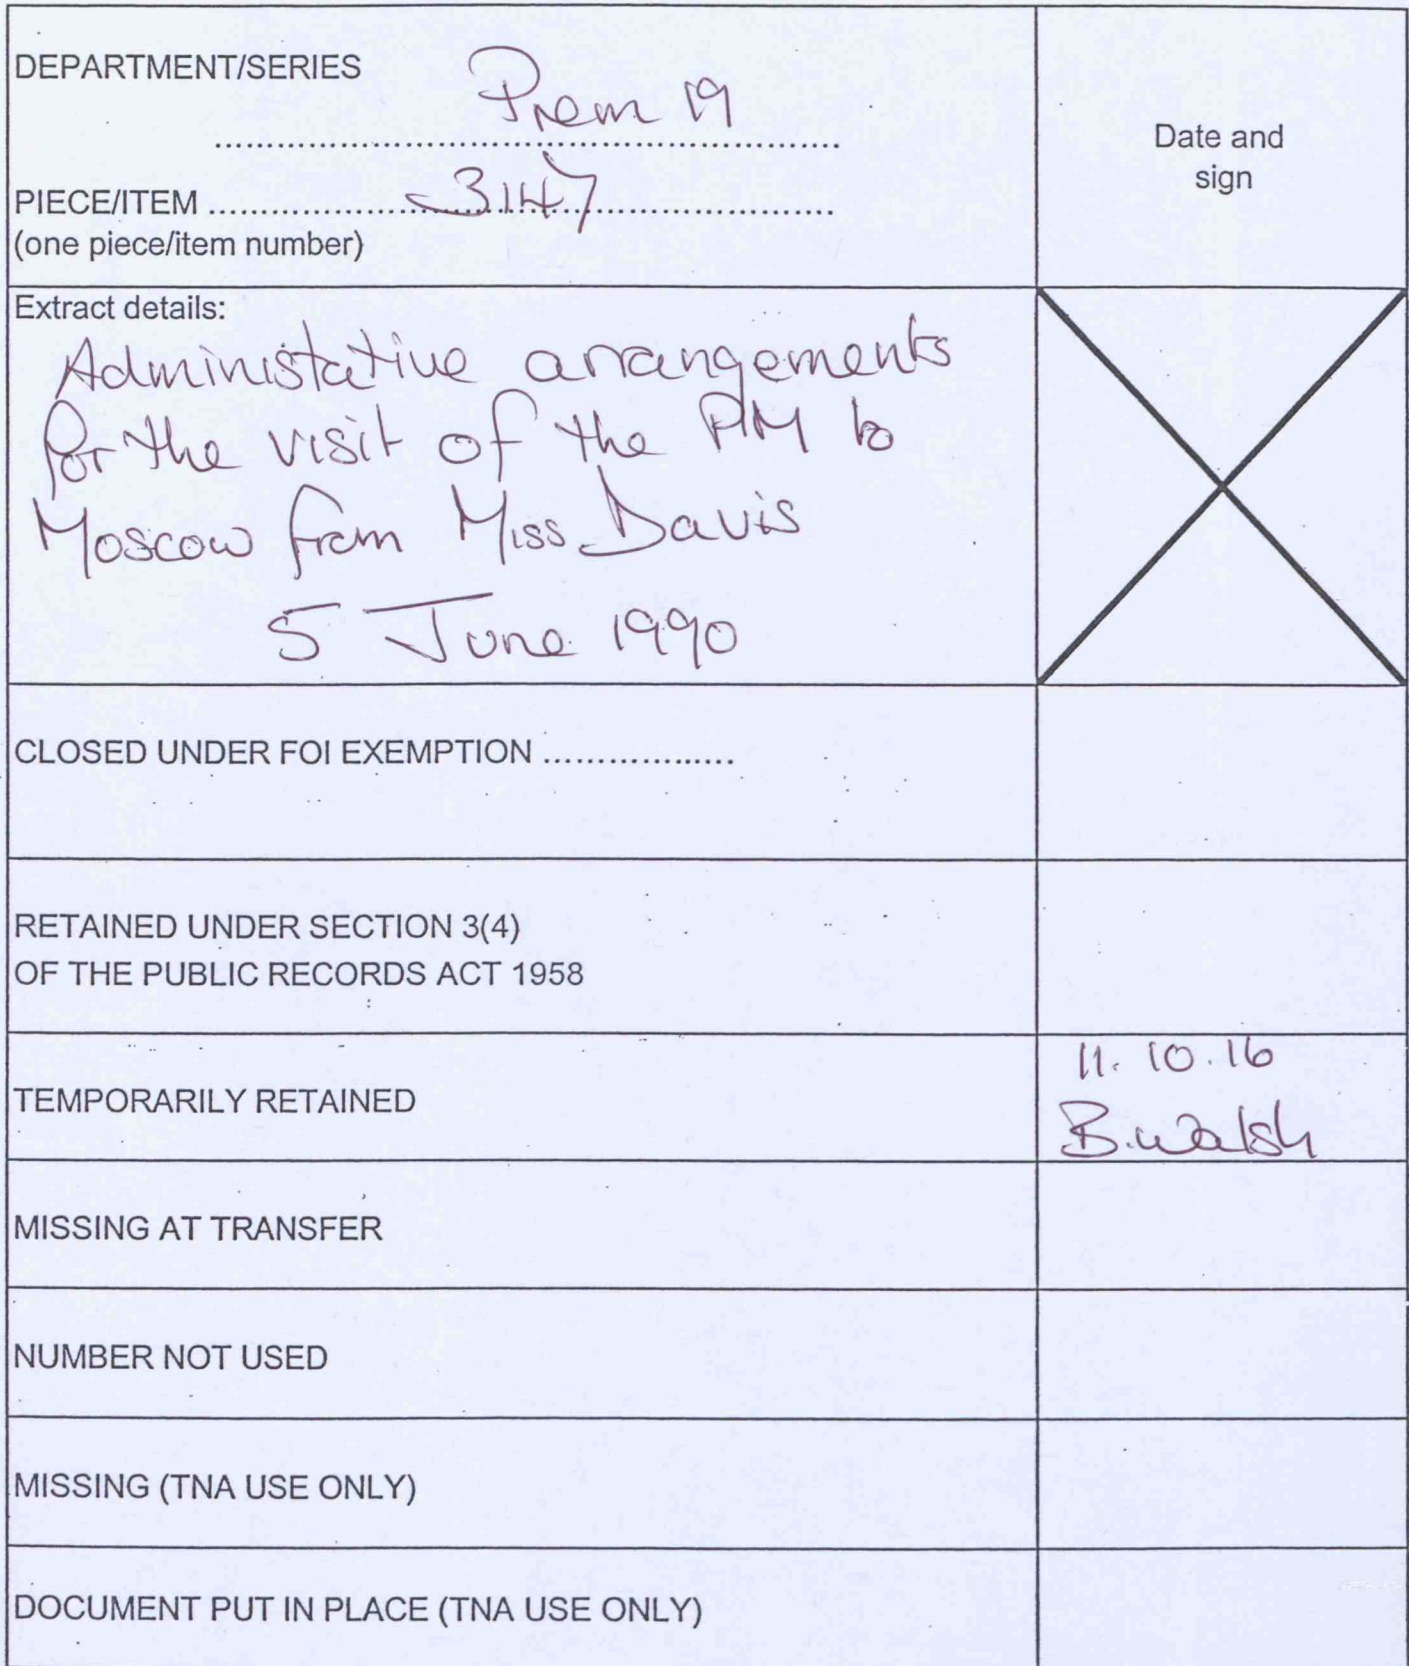 DEPARTMENT/SERIES
Prem 19
Date and
sign
PIECE/ITEM ........ 3147 ........
(one piece/item number)
Extract details:
Administative arrangements
for the visit of the PM to
Moscow from Miss Davis
5 June 1990
CLOSED UNDER FOI EXEMPTION ..................
RETAINED UNDER SECTION 3(4)
OF THE PUBLIC RECORDS ACT 1958
TEMPORARILY RETAINED
11.10.16
B.Walsh
MISSING AT TRANSFER
NUMBER NOT USED
MISSING (TNA USE ONLY)
DOCUMENT PUT IN PLACE (TNA USE ONLY)